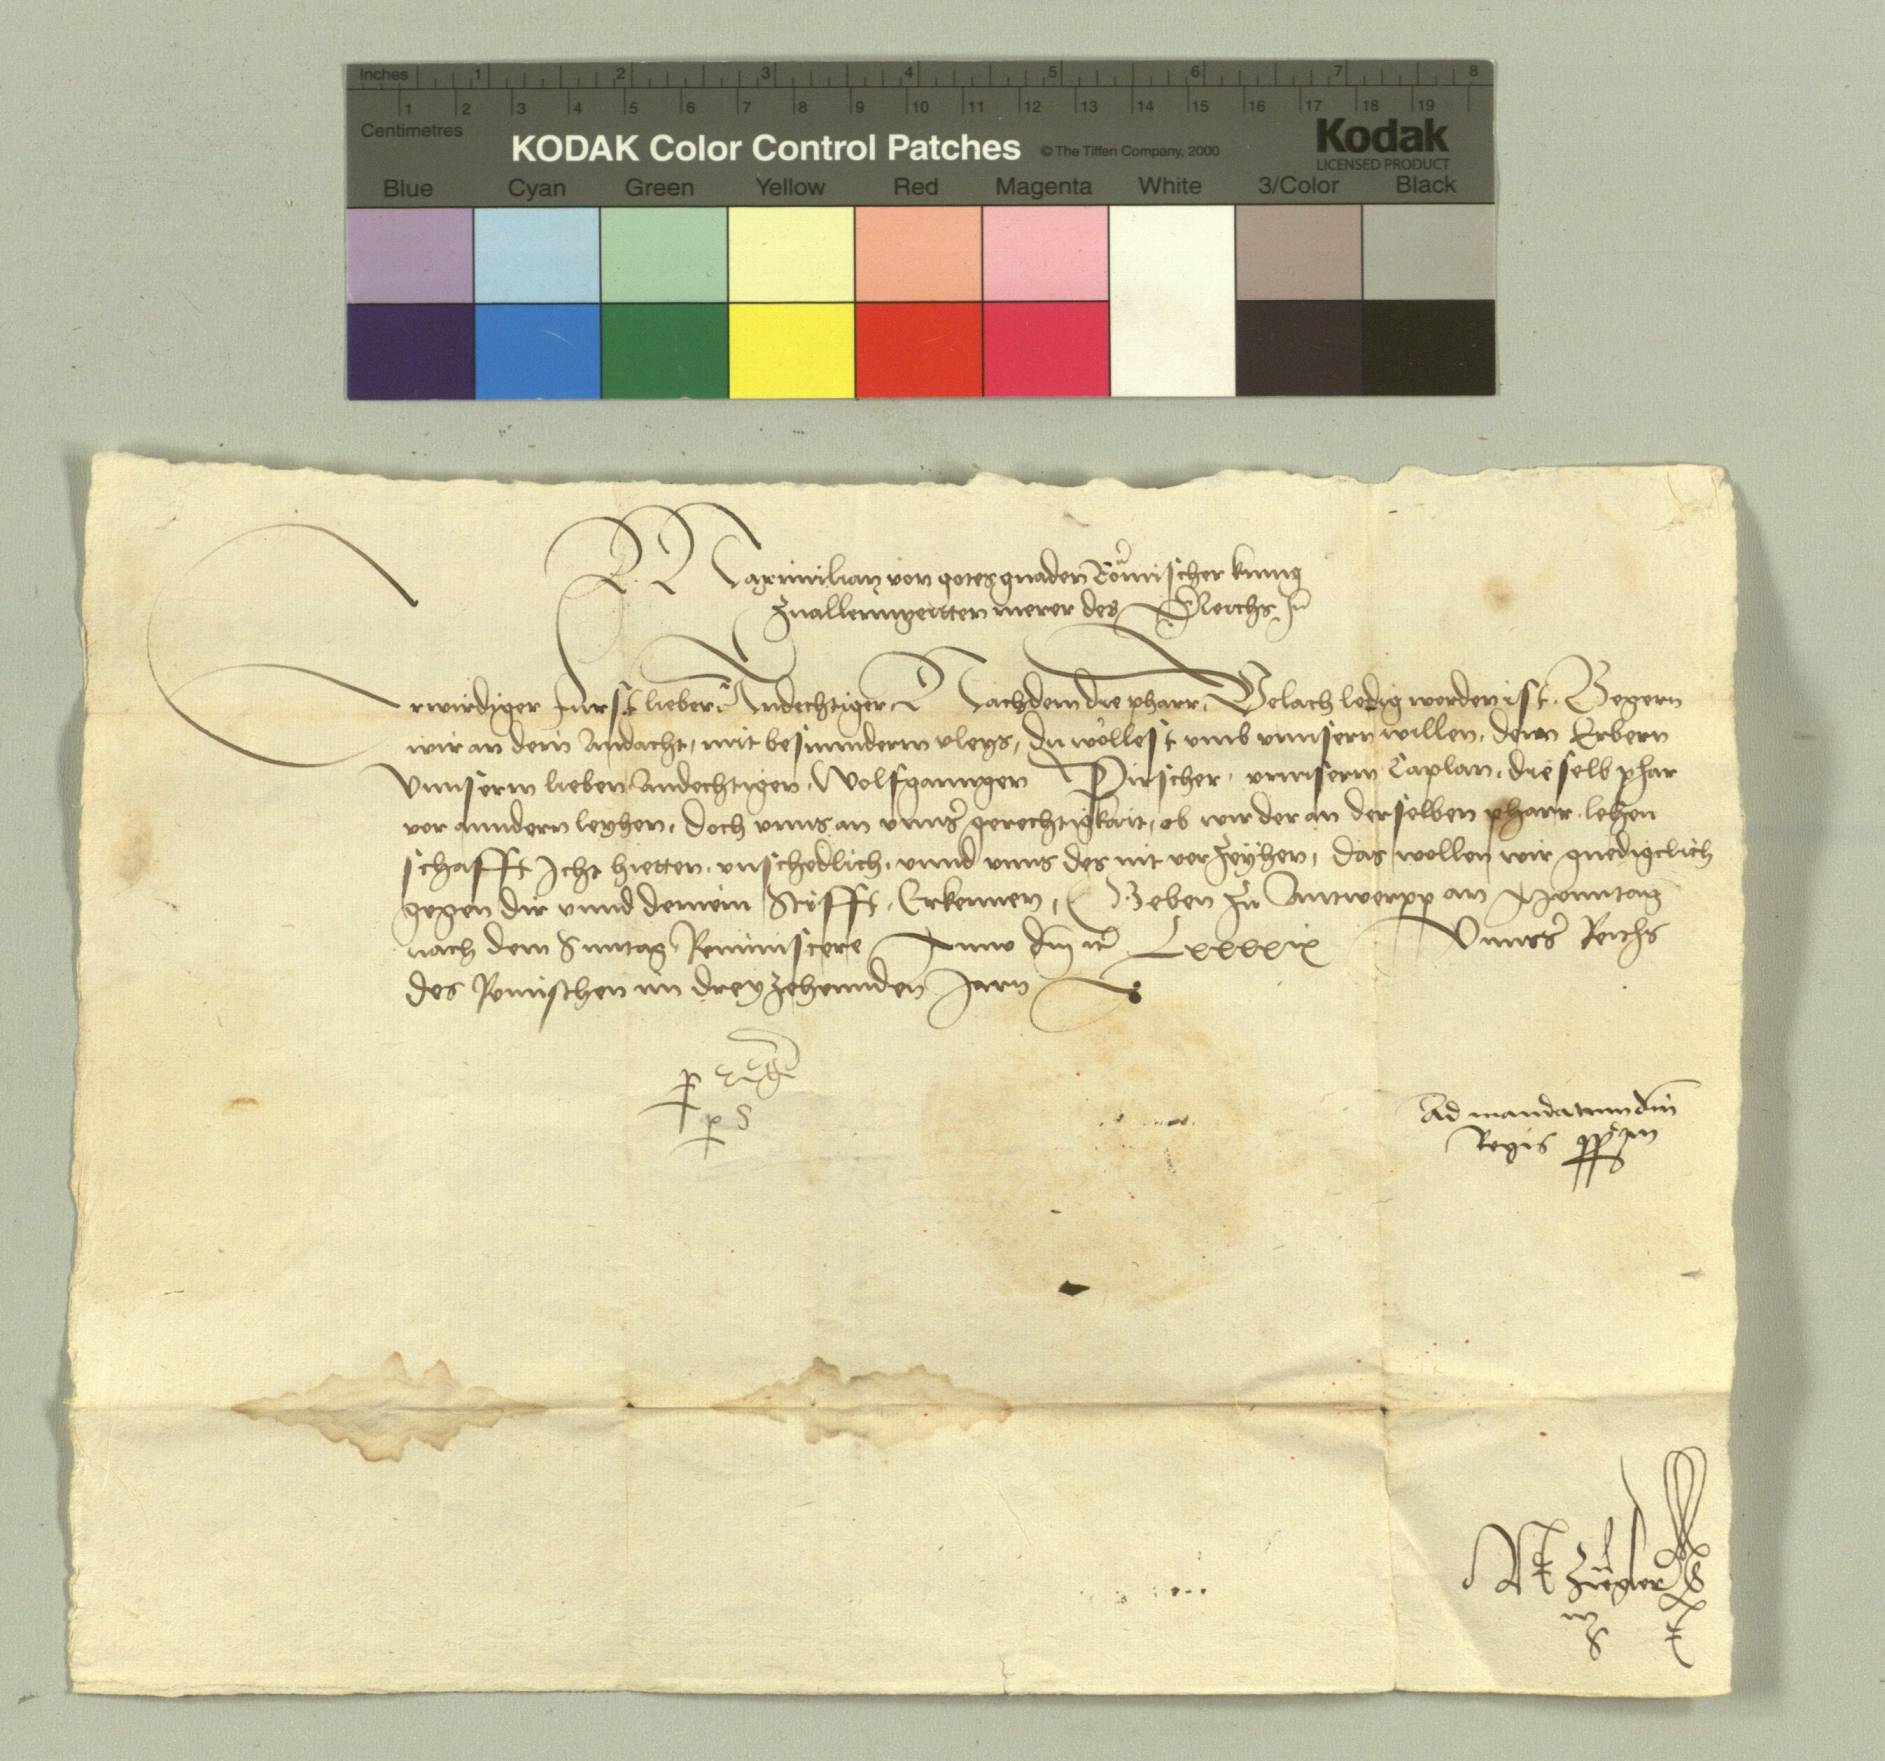 Inches 1 2 3 4 5 6 7 8
1 2 3 4 5 6 7 8 9 10 11 12 13 14 15 16 17 18 19
Centimetres
KODAK Color Control Patches © The Tiffen Company, 2000 Kodak
LICENSED PRODUCT
Blue Cyan Green Yellow Red Magenta White 3/Color Black
Maximilian von gotes gnaden Römischer kunig
zuallennzeitten merer des Reichs
Erwirdiger furst lieber Andechtiger Nachdem die pharr Velach ledig worden ist. Begern
wir an dein Andacht, mit besunnderm vleys, du wöllest vmb vnnsern willen, dem Erbern
Vnnserm lieben Andechtigen Wolfganngen Pirscher vnnserm Caplan, die selb phar
vor anndern leyhen, doch vnns an vnnser gerechtigkait, ob wir der an derselben pharr lehen
schafft Icht hietten, vnschedlich, vnnd vnns des nit verzeyhen, das wollen wir gnedigclich
gegen dir vnnd deinem Stifft, Erkennen, Geben zu Antwerpp an Monntag
nach dem Sunntag Reminiscere Anno dm̄ Lxxxxix Vnnsers Reichs
des Romischen im dreyzehennden Jarn
p
p S
Ad mandatum dm̄
Regis
Ziegler